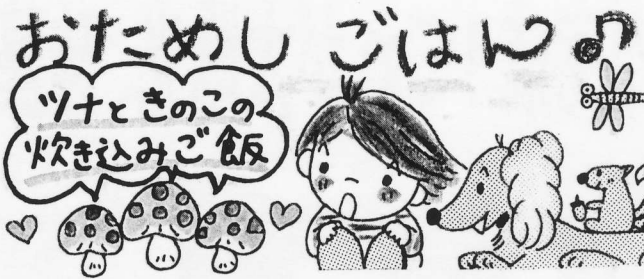 おためしごはん♪
ツナときのこの
炊き込みご飯